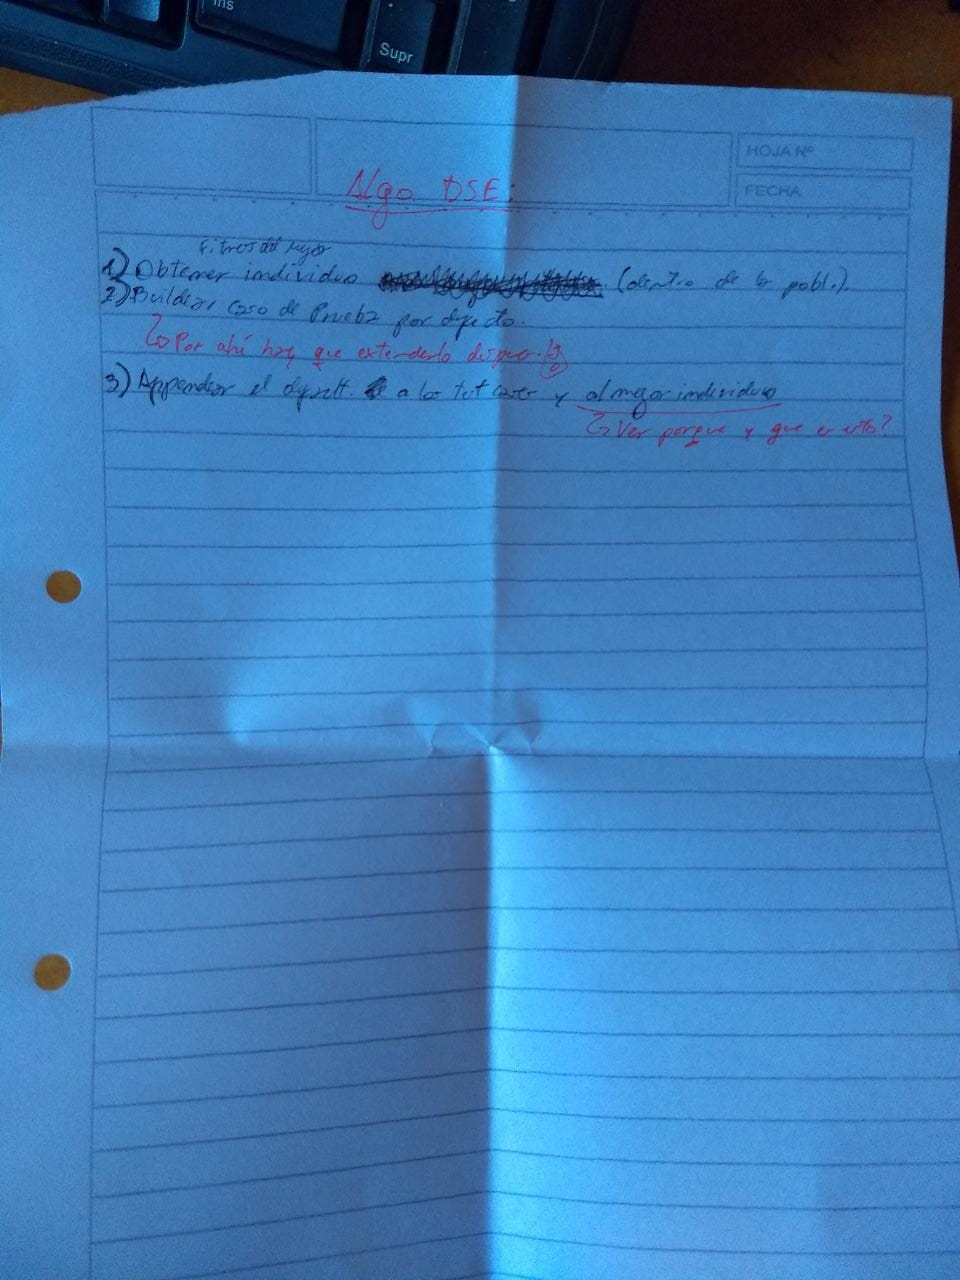 Ins
Supr
HOJA Nº
FECHA
Algo DSE:
Fitness del mejor
1) Obtener individuo (dentro de la pobl.).
2) Buildear caso de Prueba por defecto.
↳ Por ahí hay que extenderlo después.
3) Appendear el a los test cases y al mejor individuo
↳ Ver porque y que es esto?